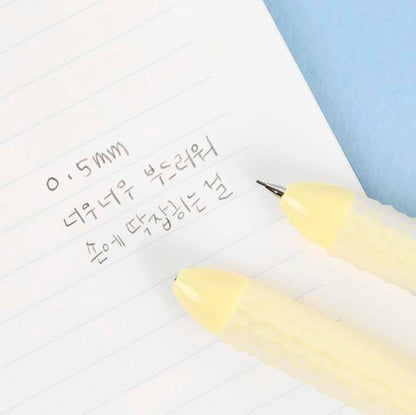 0.5mm
너우너우 부드러워
손에 딱잡히는걸